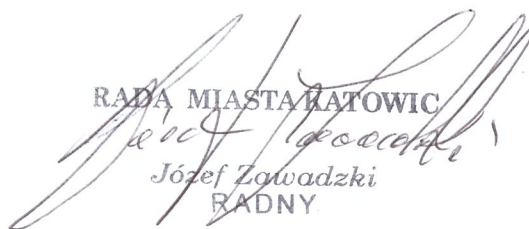 RADA MIASTA KATOWIC
Józef Zawadzki
Józef Zawadzki
RADNY